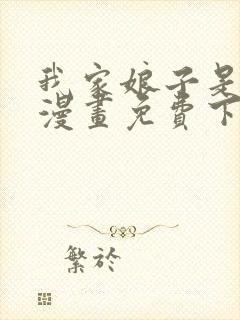 我家娘子是
漫畫免費下
繁於